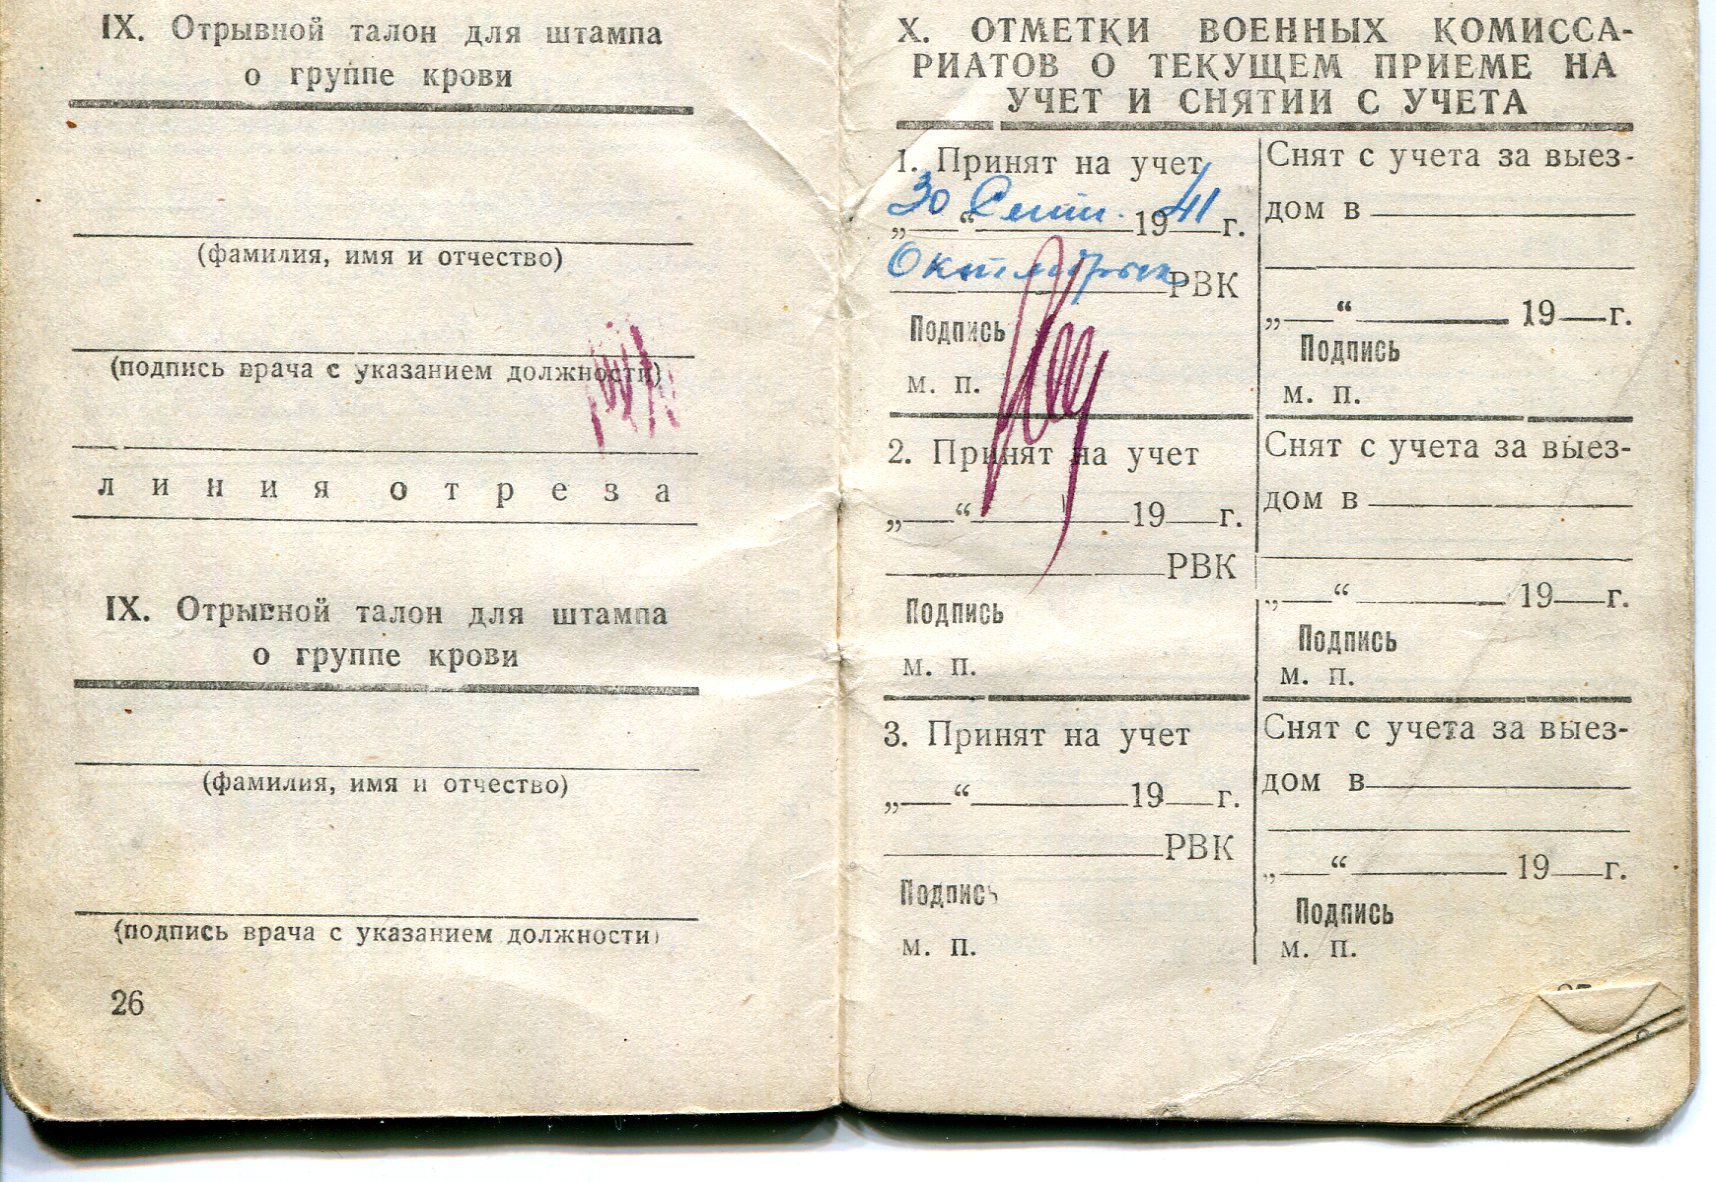 IX. Отрывной талон для штампа
о группе крови
(фамилия, имя и отчество)
(подпись врача с указанием должности)
линия отреза
IX. Отрывной талон для штампа
о группе крови
(фамилия, имя и отчество)
(подпись врача с указанием должности)
26
X. ОТМЕТКИ ВОЕННЫХ КОМИССА-
РИАТОВ О ТЕКУЩЕМ ПРИЕМЕ НА
УЧЕТ И СНЯТИИ С УЧЕТА
1. Принят на учет
„30“ Сент. 1941 г.
РВК
Подпись
м. п.
Снят с учета за выез-
дом в
„ “ 19 г.
Подпись
м. п.
2. Принят на учет
„ “ 19 г.
РВК
Подпись
м. п.
Снят с учета за выез-
дом в
„ “ 19 г.
Подпись
м. п.
3. Принят на учет
„ “ 19 г.
РВК
Подпись
м. п.
Снят с учета за выез-
дом в
„ “ 19 г.
Подпись
м. п.